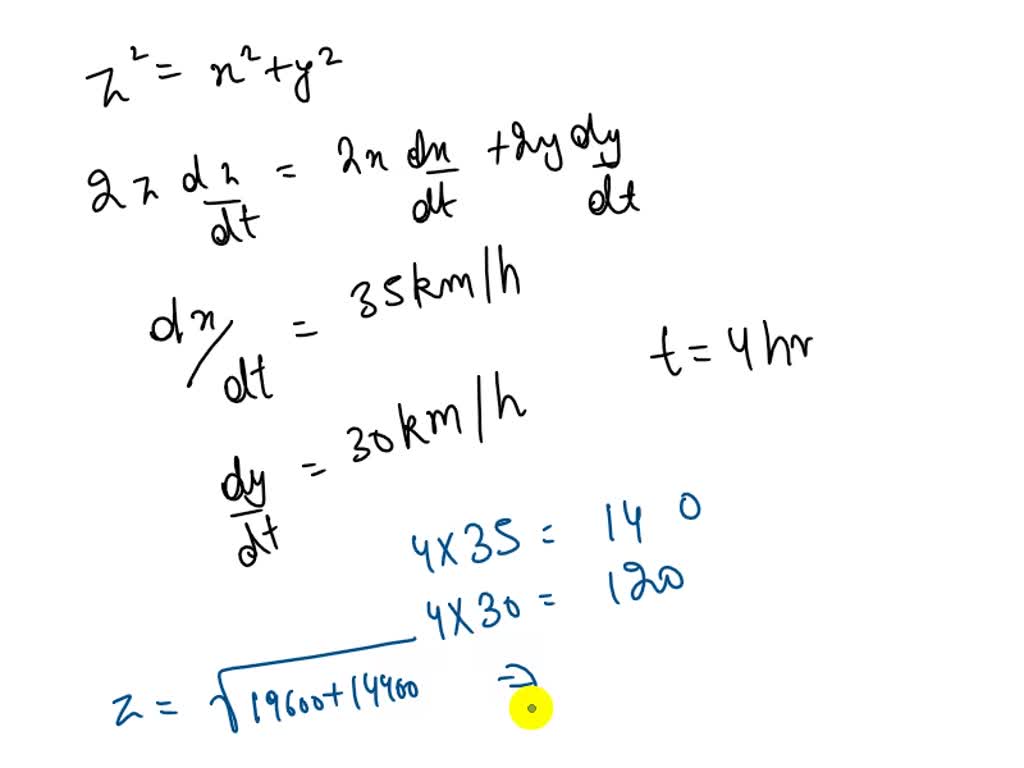 z² = x² + y²
2z dz/dt = 2x dx/dt + 2y dy/dt
dx/dt = 35 km/h
t = 4 hr
dy/dt = 30 km/h
4 × 35 = 140
4 × 30 = 120
z = √19600 + 14400 ⇒